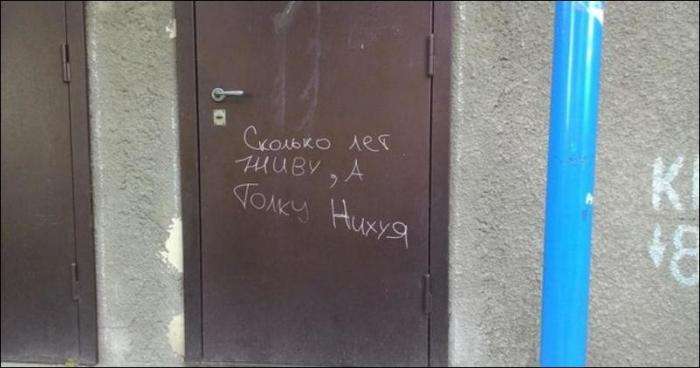 Сколько лет
живу, а
Толку Нихуя